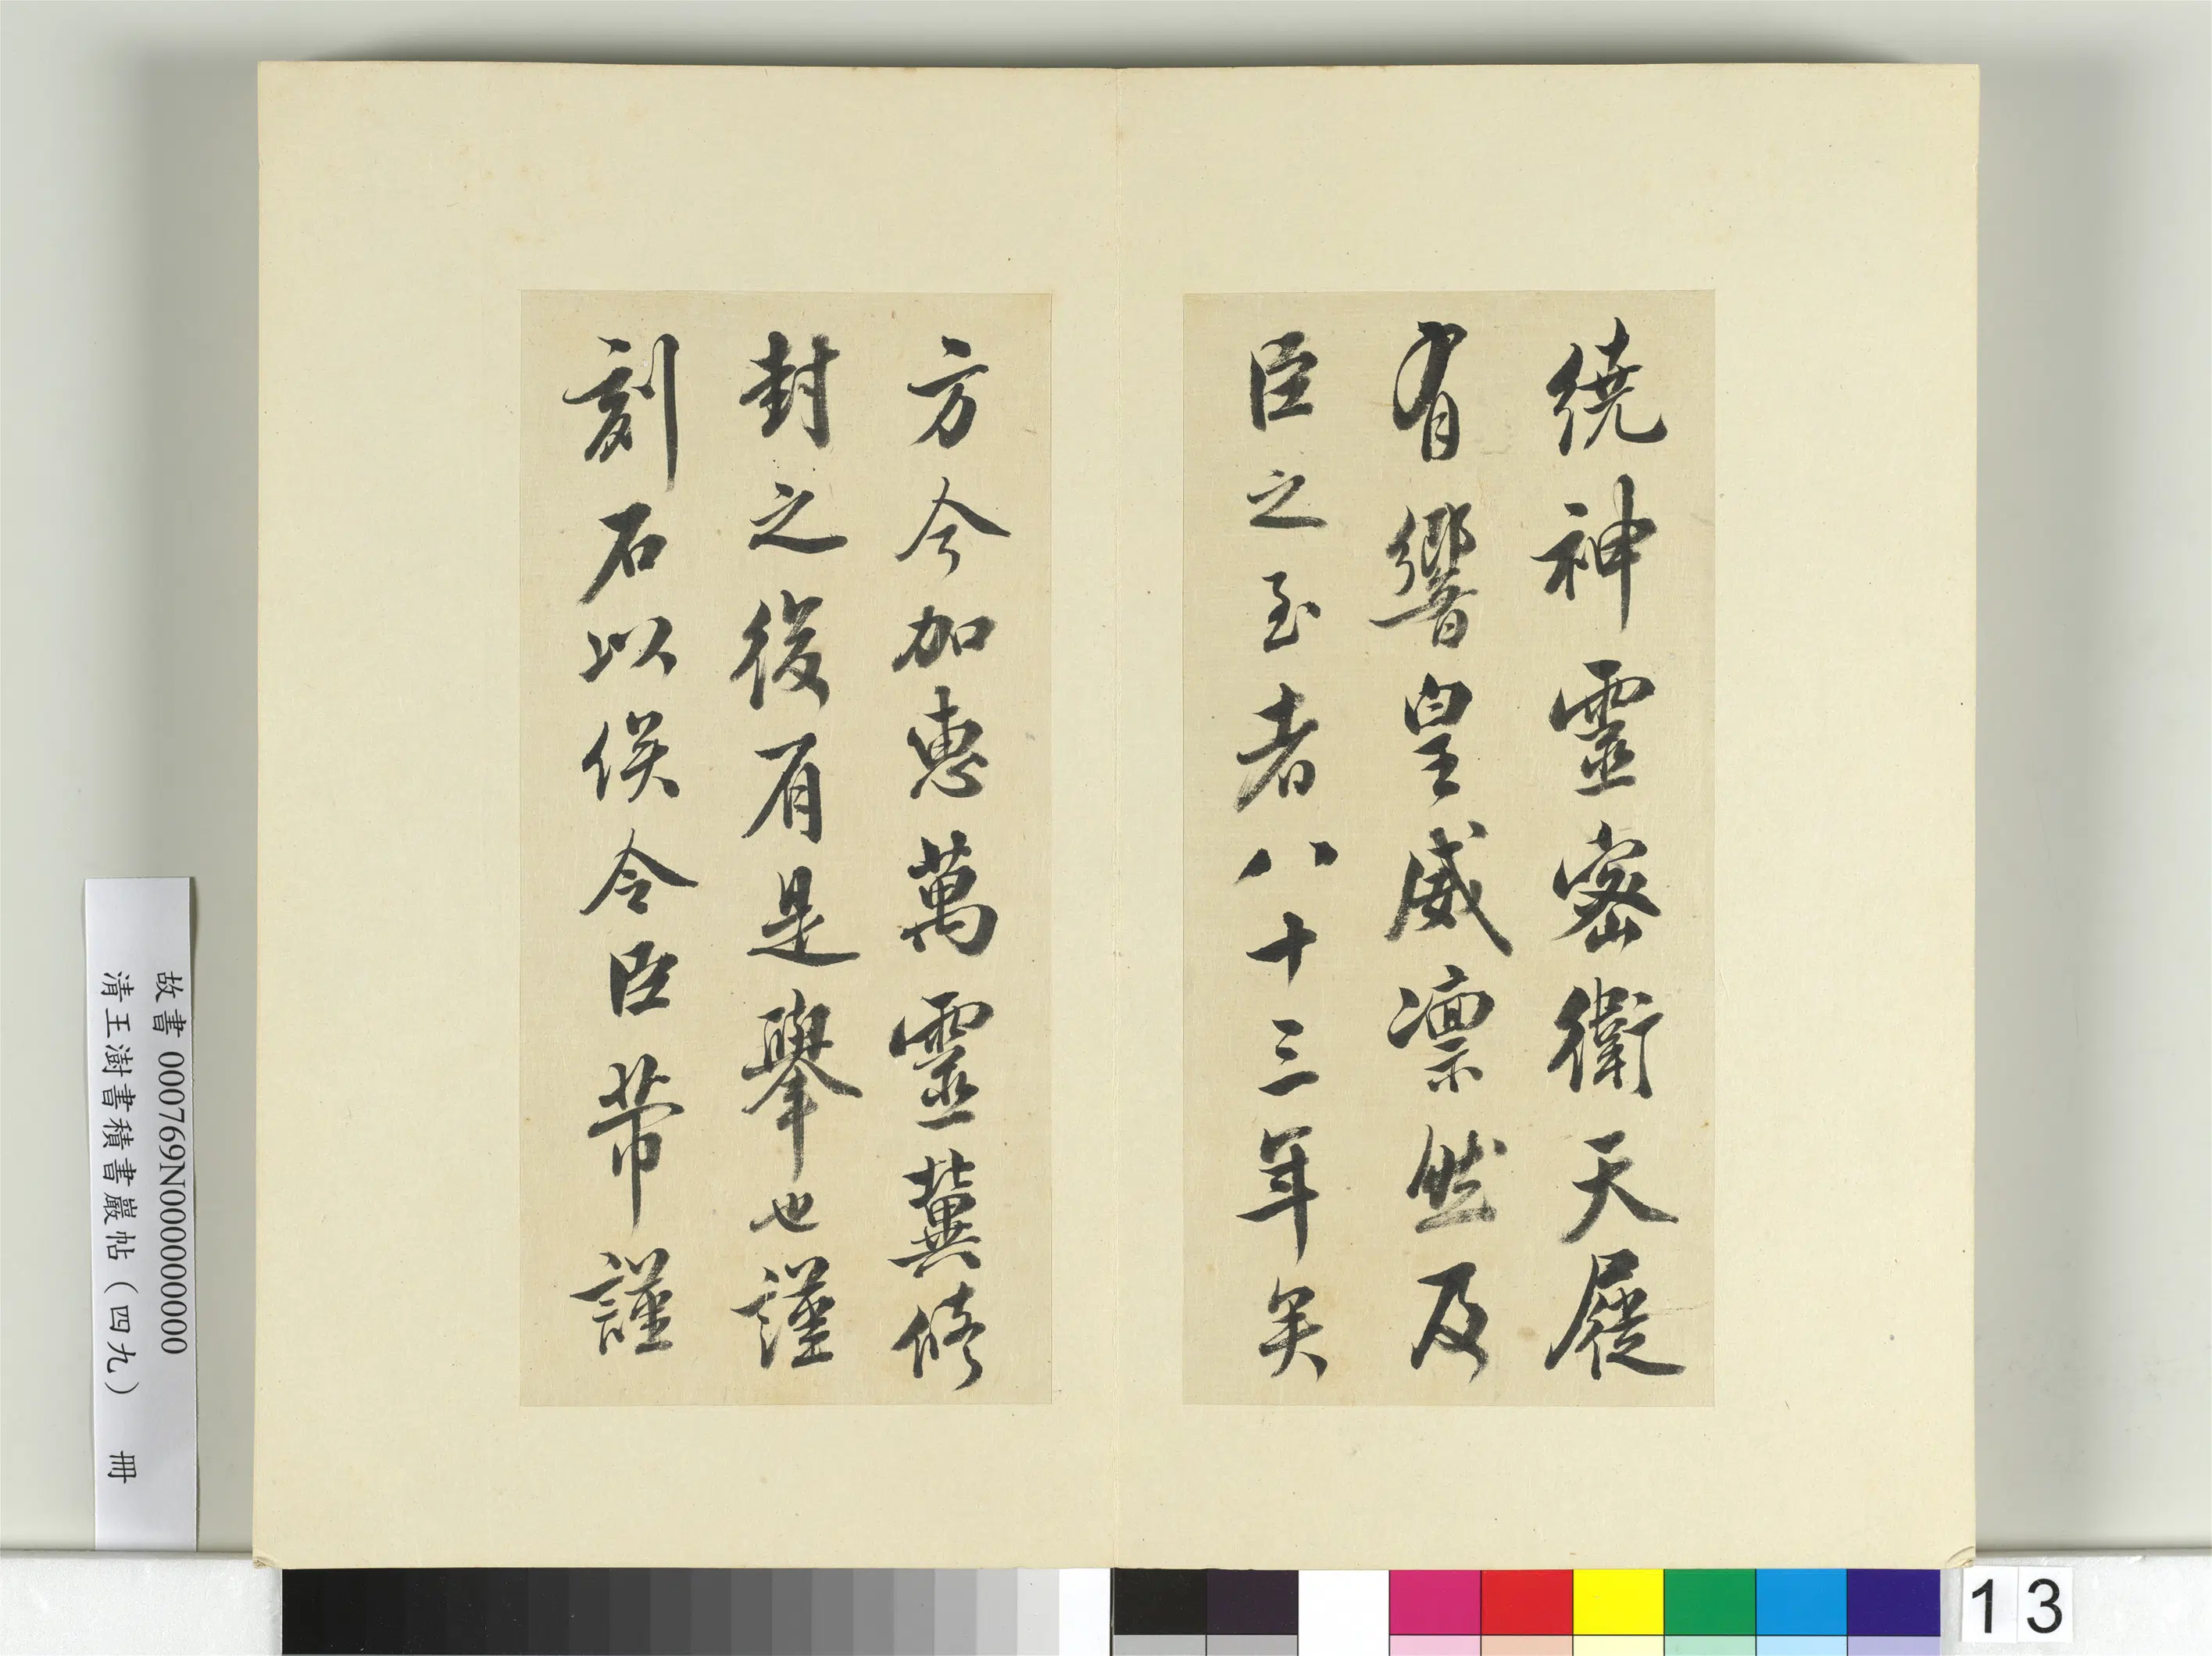 繞神靈密衛天屣
有響皇威凛然及
臣之至者八十三年矣
方今加惠萬靈冀脩
封之後有是舉也謹
刻石以俟令臣芾謹
故書 000769N000000000
清王澍書積書巖帖（四九） 冊
13